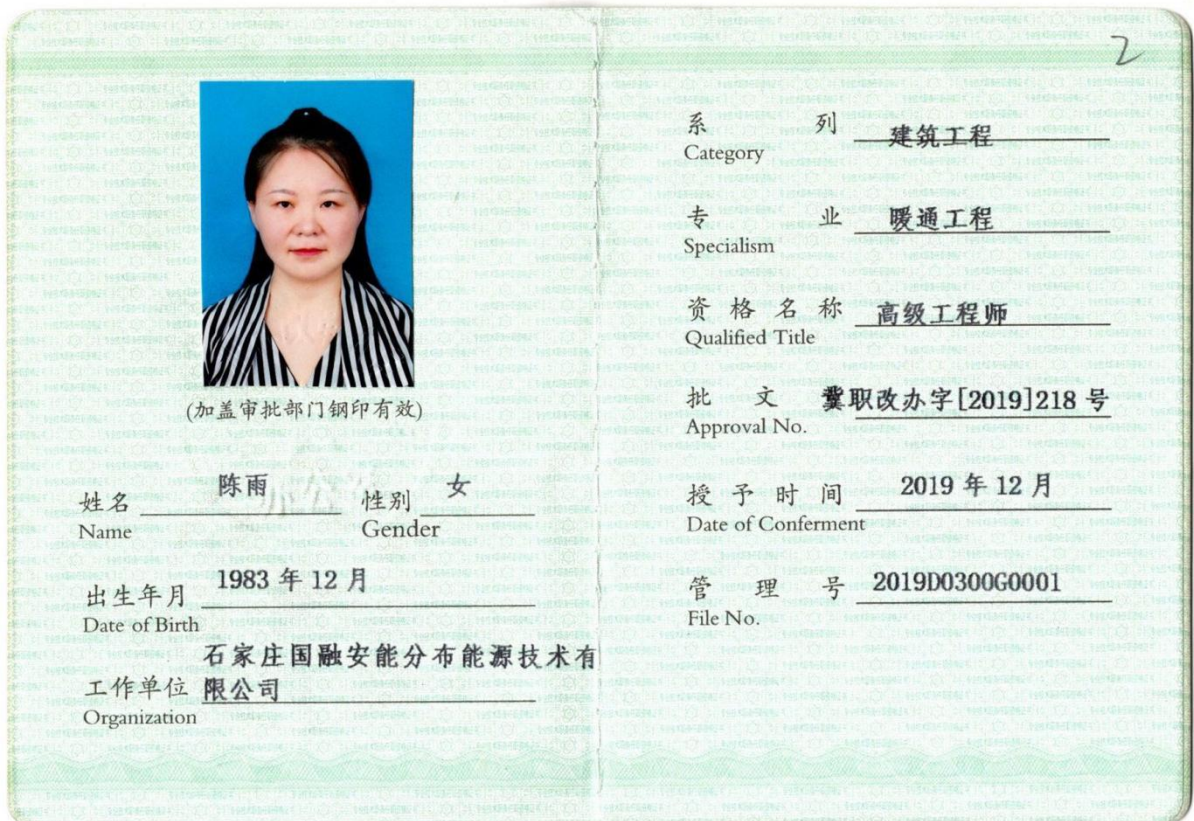 2
(加盖审批部门钢印有效)
姓名 陈雨 性别 女
Name Gender
出生年月 1983 年 12 月
Date of Birth
石家庄国融安能分布能源技术有
工作单位 限公司
Organization
系 列 建筑工程
Category
专 业 暖通工程
Specialism
资 格 名 称 高级工程师
Qualified Title
批 文 冀职改办字[2019]218 号
Approval No.
授 予 时 间 2019 年 12 月
Date of Conferment
管 理 号 2019D0300G0001
File No.